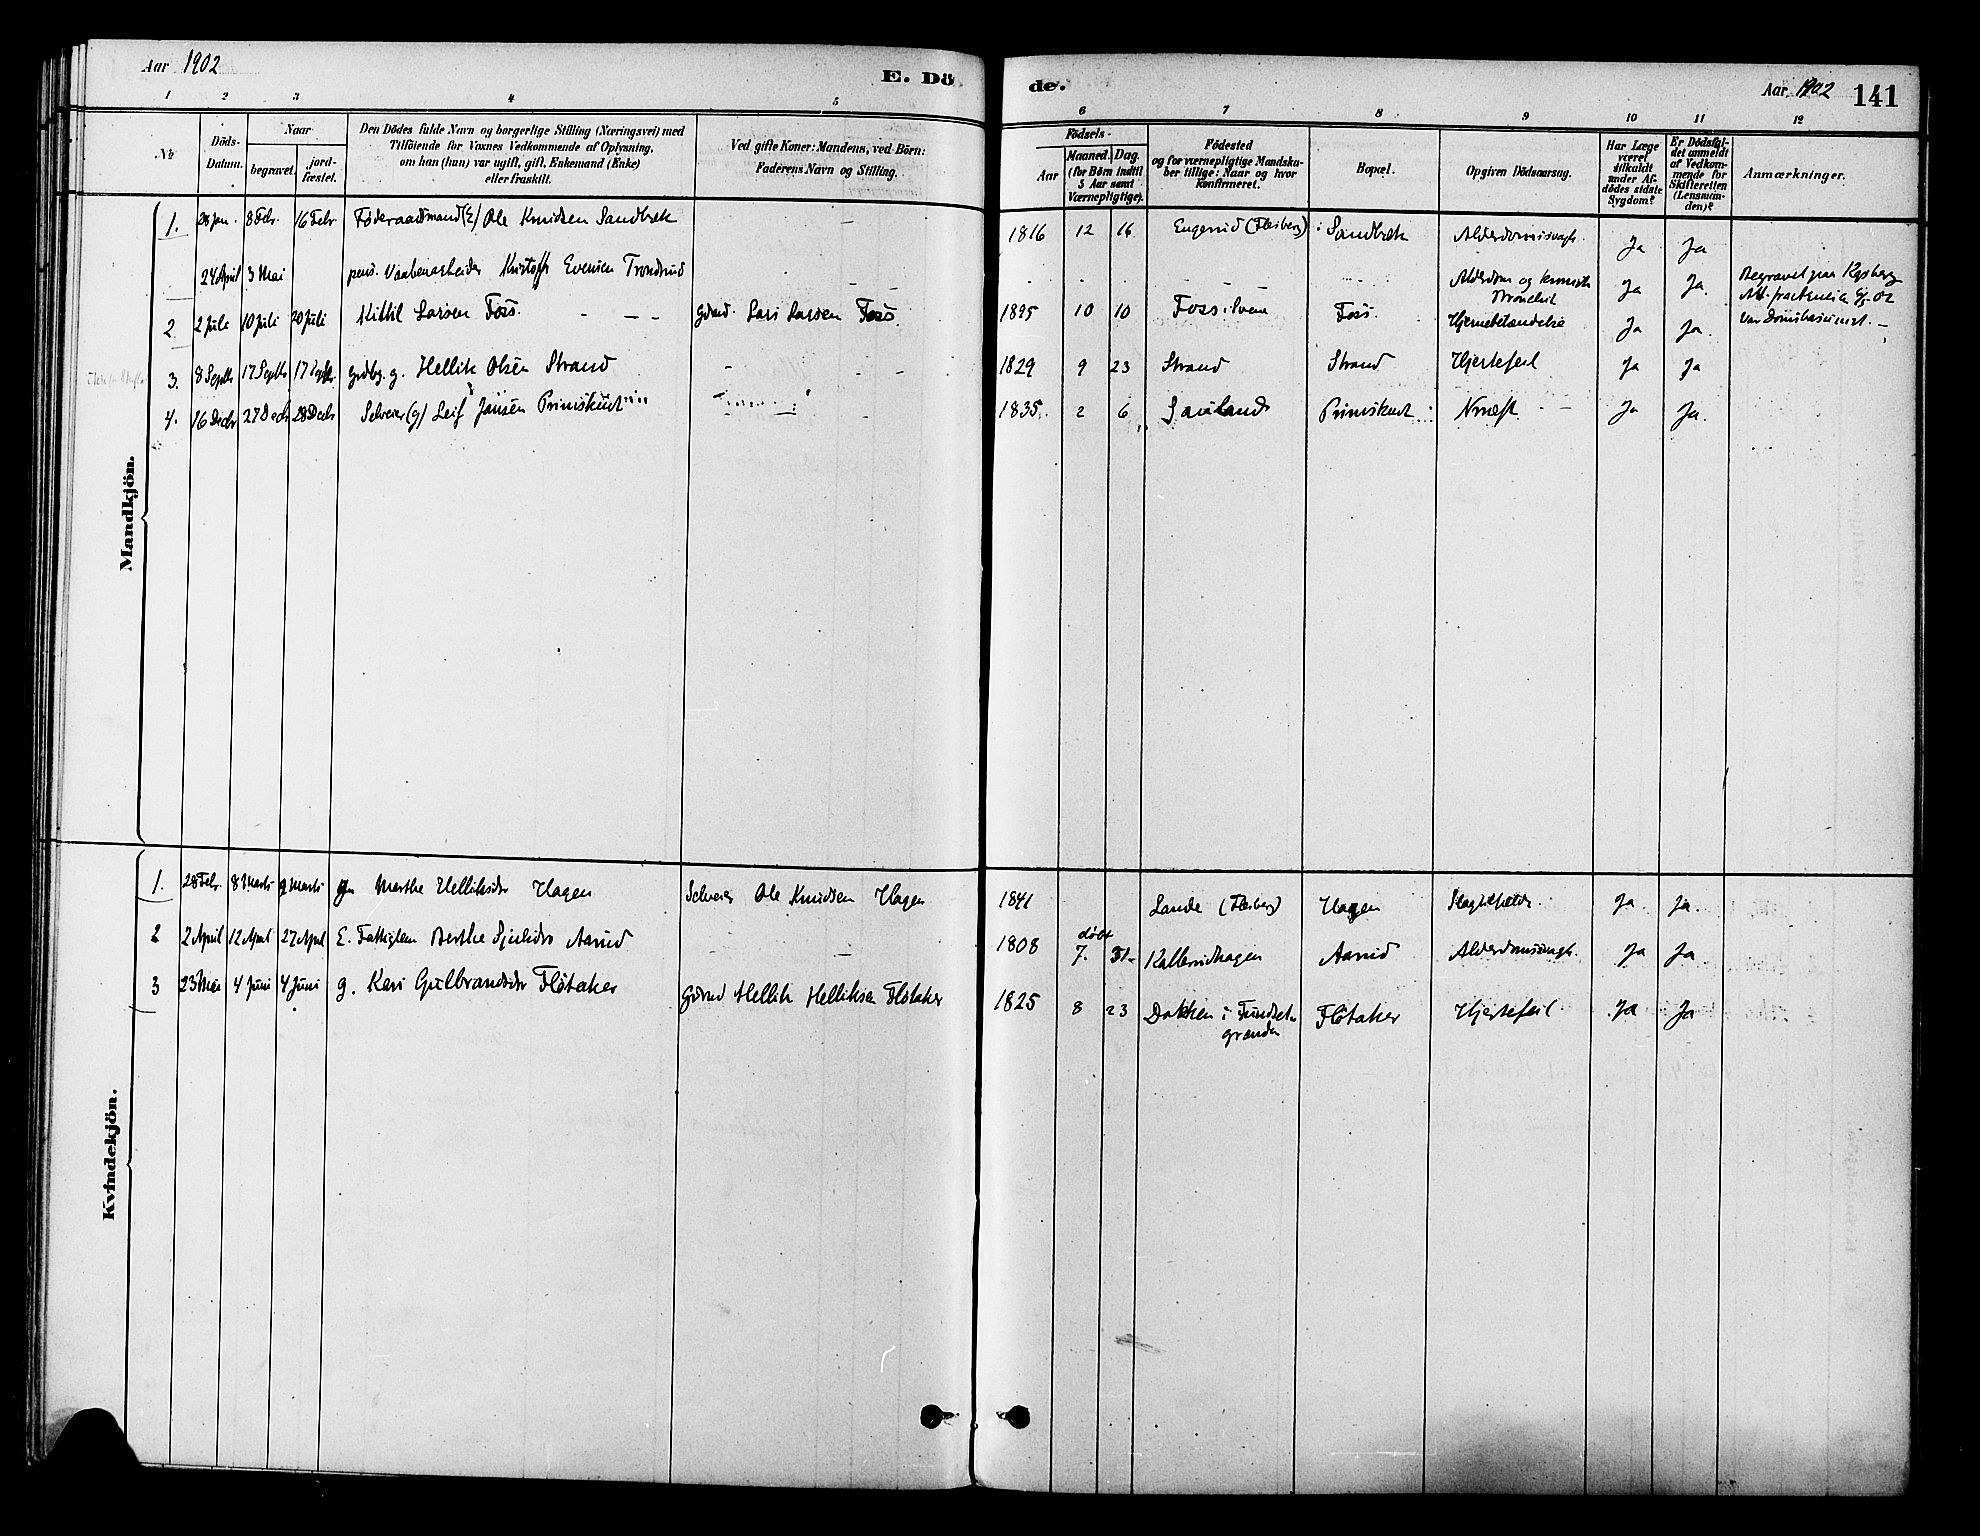 Aar 1902
E. Dö
de.
Aar 1902
141
1 2 3 4 5 6 7 8 9 10 11 12
No
Döds-
Datum.
Naar
begravet.
jord-
fæstet.
Den Dödes fulde Navn og borgerlige Stilling (Næringsvei) med
Tilföiende for Voxnes Vedkommende af Oplysning,
om han (hun) var ugift, gift, Enkemand (Enke)
eller fraskilt.
Ved gifte Koner: Mandens, ved Börn:
Faderens Navn og Stilling.
Födsels-
Aar
Maaned.
Dag.
(for Börn indtil
5 Aar samt
Værnepligtige).
Födested
og for værnepligtige Mandska-
ber tillige: Naar og hvor
konfirmeret.
Bopæl.
Opgiven Dödsaarsag.
Har Læge
været
tilkaldt
under Af-
dödes sidste
Sygdom?
Er Dödsfal-
det anmeldt
af Vedkom-
mende for
Skifteretten
(Lensman-
den)?
Anmærkninger.
Mandkjön.
1. 28 Jan. 8 Febr. 16 Febr Föderaadsmand (E) Ole Knudsen Sandbæk — 1816 12 16 (Flesberg) Sandbæk Ja Ja
24 April 3 Mai pens. Vaabenarbeider Kristoff Evensen Trondrud — — Alderdom og kronisk Ja Ja. Begravet paa
2 2 Juli 10 Juli 20 Juli Kittil Larsen Foss. — — Gdbrd. Lars Larsen Foss. 1895 10 10 Foss i Svene Foss. Hjernebetændelse Ja Ja
3. 8 Septb 17 Septb 17 Septb grdbr. g. Hellik Olsen Strand — — 1829 9 23 Strand Strand Hjertefeil Ja Ja
4. 16 Decbr 27 Decbr 28 Decbr Selveier (g) Leif Jansen Primskut 1835. 2 6 Primskut Ja Ja.
Kvindekjön.
1. 28 Febr. 8 Marts 9 Marts gm Marthe Helliksdr Hagen Selveier Ole Knudsen Hagen 1841 Lande (Flesberg) Hagen Slagtilfælde. Ja Ja.
2 2 April 12 April 27 April E. Fattiglem Berthe Aasrud — — 1808 döbt 7. 31. Aasrud Alderdomssvagh. Ja Ja
3 23 Mai 4 Juni 4 Juni g. Kari Gulbrandsdr Flötaker Gdbrd Hellik Helliksen Flötaker 1825 8 23 Dokken i
grænden Flötaker Hjertefeil Ja Ja